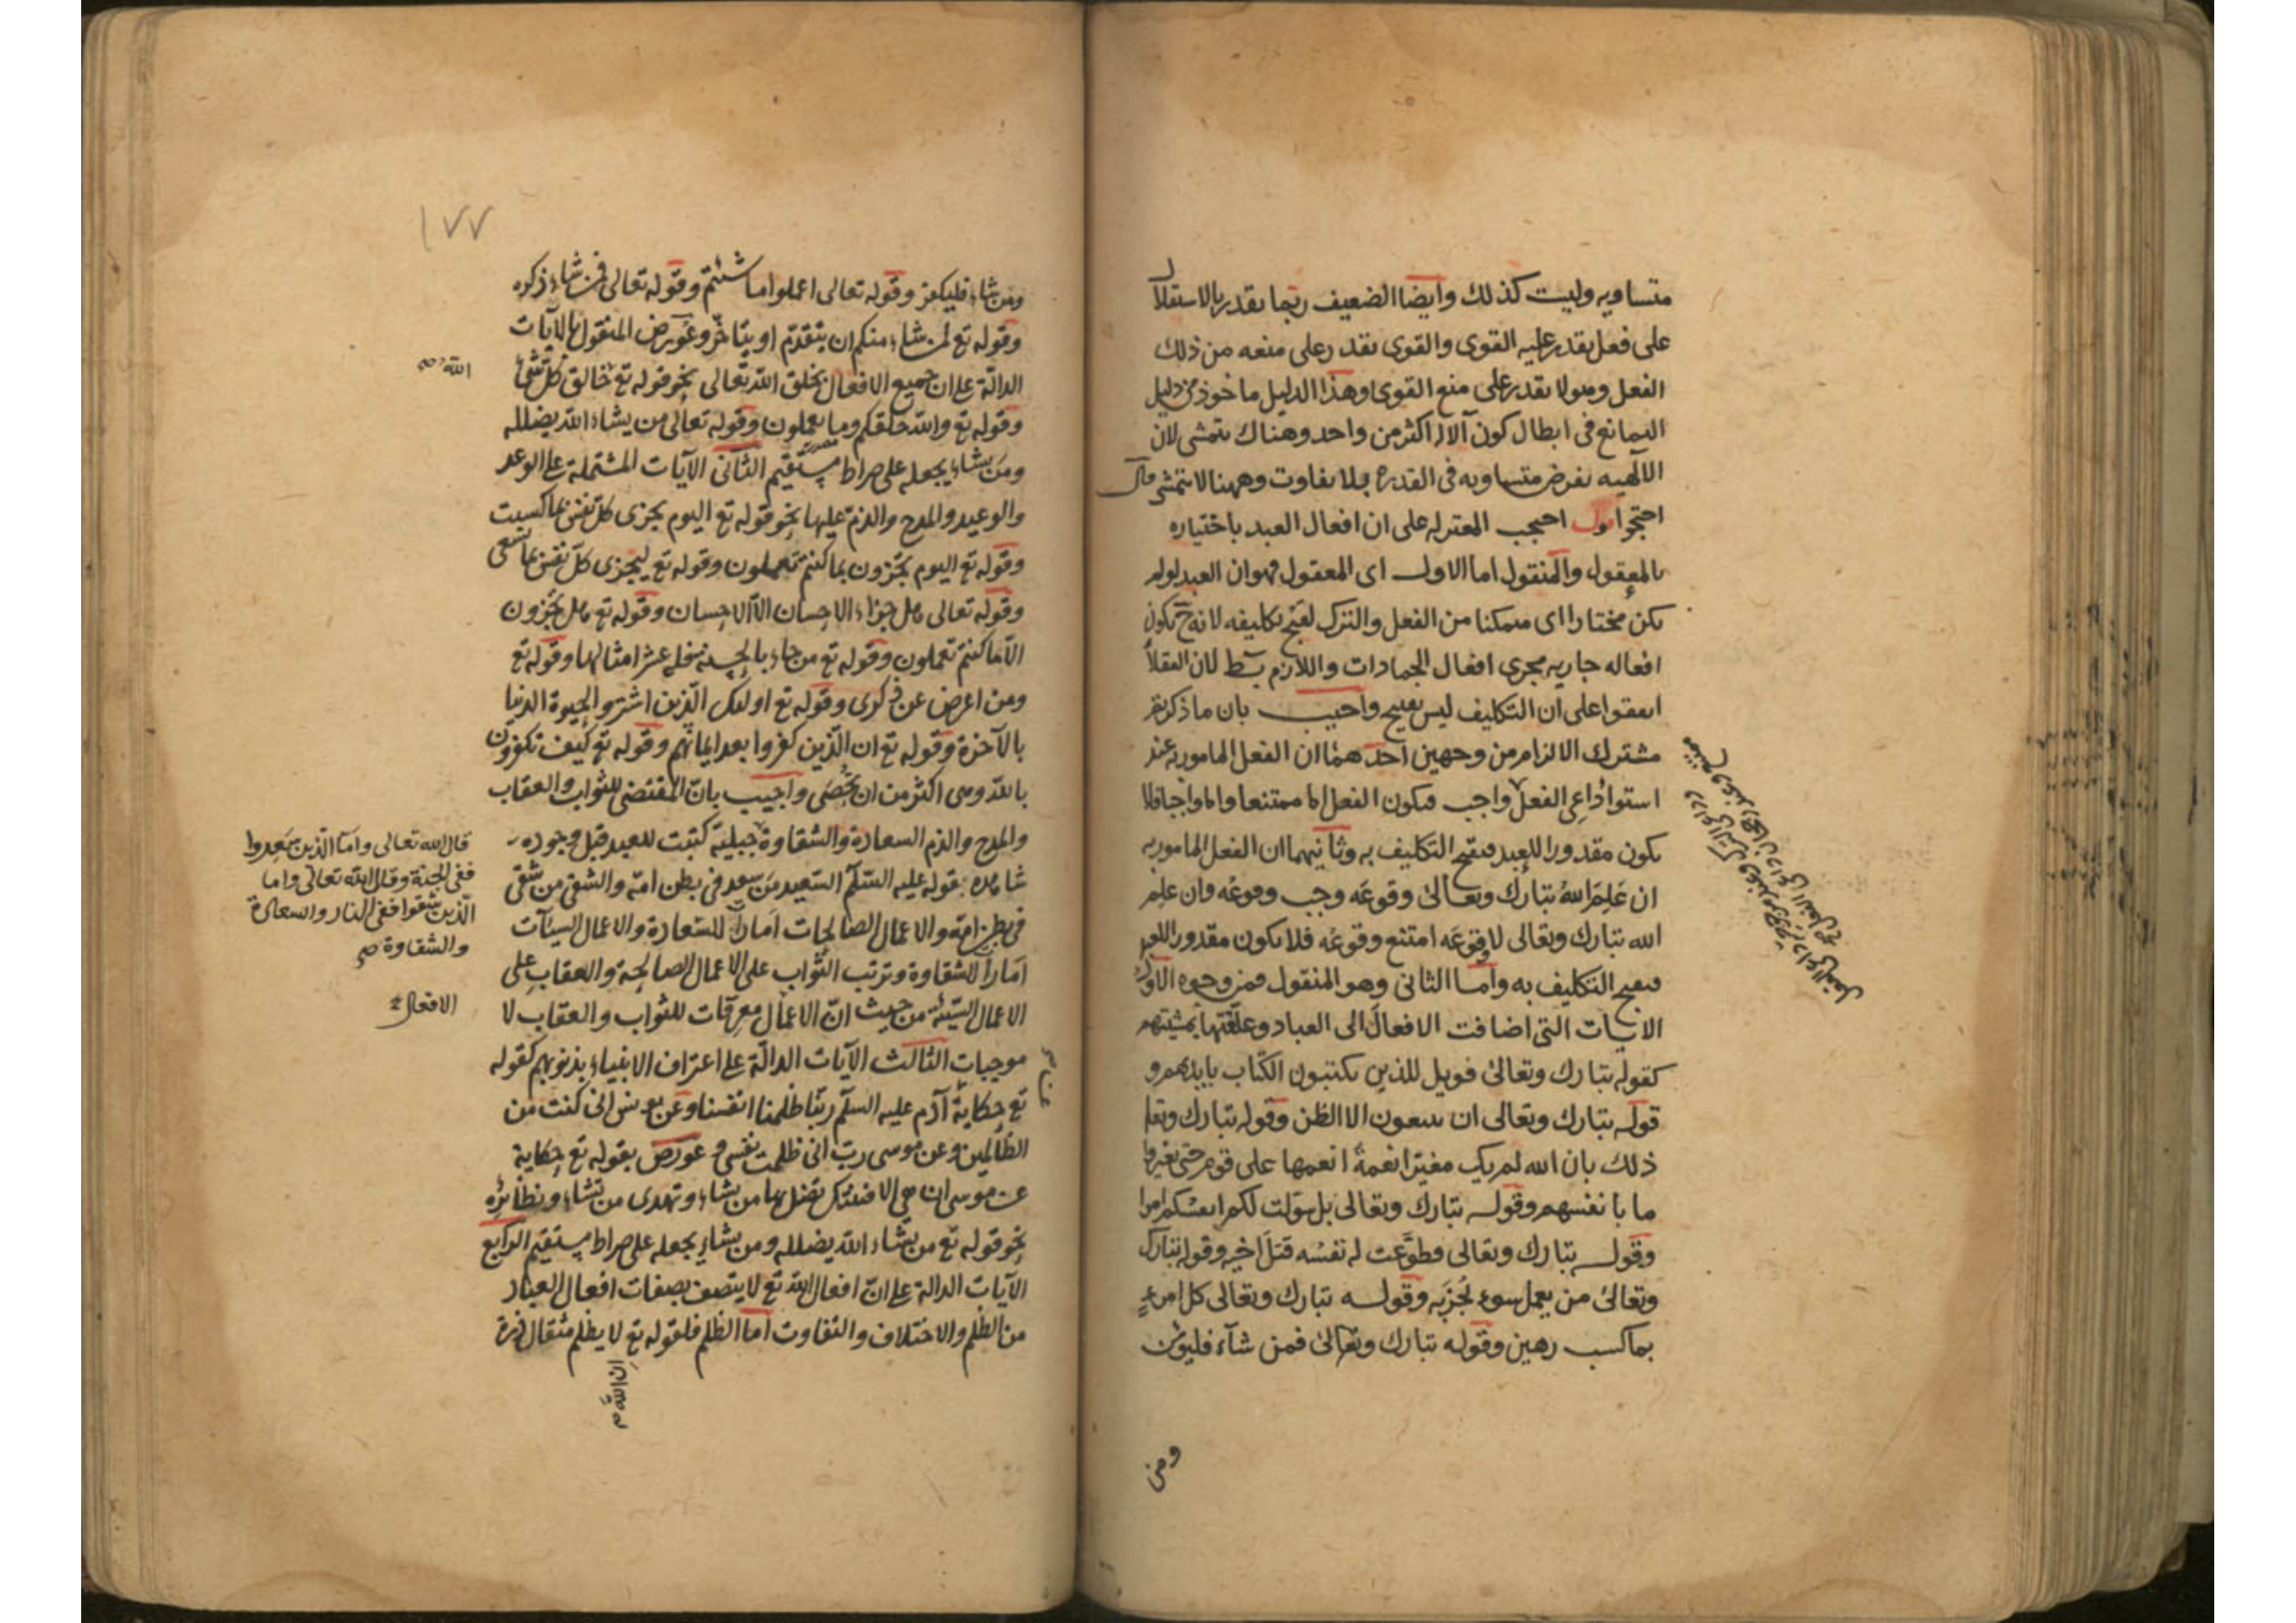 متساويه وليست كذلك وايضا الضعيف ربما يقدر بالاستقلال
على فعل يقدر عليه القوى والقوى يقدر على منعه من ذلك
الفعل وهو لا يقدر على منع القوى وهذا الدليل ماخوذ من دليل
التمانع فى ابطال كون الاله اكثر من واحد وهناك يتمشى لان
الالهيه يفرض متساويه فى القدرة بلا تفاوت وههنا لا يتمشى قال
احتجوا اقول احتجت المعتزله على ان افعال العبد باختياره
بالمعقول والمنقول اما الاول اى المعقول فهو ان العبد لو لم
يكن مختارا اى متمكنا من الفعل والترك لقبح تكليفه لانه ح يكون
افعاله جاريه مجرى افعال الجمادات واللازم بط لان العقلا
اتفقوا على ان التكليف ليس بقبيح واجيب بان ما ذكرتم
مشترك الالزام من وجهين احدهما ان الفعل المامور به عند
استوا داعى الفعل واجب فيكون الفعل اما ممتنعا واما واجبا فلا
يكون مقدورا للعبد فيقبح التكليف به وثانيهما ان الفعل المامور به
ان عَلِمَ اللهُ تبارك وتعالى وقوعَه وجب وقوعُه وان علم
الله تبارك وتعالى لا وقوعَه امتنع وقوعُه فلا يكون مقدورا للعبد
فيقبح التكليف به واما الثانى وهو المنقول فمن وجوه الاول
الايات التى اضافت الافعال الى العباد وعلقتها بمشيتهم
كقوله تبارك وتعالى فويل للذين يكتبون الكتاب بايديهم و
قوله تبارك وتعالى ان يتبعون الا الظن وقوله تبارك وتعا
ذلك بان الله لم يك مغيرا نعمةً انعمها على قوم حتى يغيروا
ما بانفسهم وقوله تبارك وتعالى بل سولت لكم انفسكم امرا
وقوله تبارك وتعالى فطوَّعت له نفسُه قتلَ اخيه وقوله تبارك
وتعالى من يعمل سوء يُجزَ به وقوله تبارك وتعالى كل امرءٍ
بما كسب رهين وقوله تبارك وتعالى فمن شآء فليؤمن
ومن
١٧٧
ومن شاء فليكفر وقوله تعالى اعملوا ما شئتم وقوله تعالى فمن شاء ذكره
وقوله تع لمن شاء منكم ان يتقدم او يتاخر وعورض المنقول بالآيات
الدالة على ان جميع الافعال بخلق الله تعالى نحو قوله تع خالق كل شئ
الله صح
وقوله تع والله خلقكم وما تعملون وقوله تعالى من يشاء الله يضلله
ومن يشاء يجعله على صراط مستقيم الثانى الآيات المشتملة على الوعد
والوعيد والمدح والذم عليها نحو قوله تع اليوم تجزى كل نفس بما كسبت
وقوله تع اليوم تجزون بما كنتم تعملون وقوله تع لتجزى كل نفس بما تسعى
وقوله تعالى هل جزاء الاحسان الا الاحسان وقوله تع هل تجزون
الا ما كنتم تعملون وقوله تع من جاء بالحسنة فله عشر امثالها وقوله تع
ومن اعرض عن ذكرى وقوله تع اولئك الذين اشتروا الحيوة الدنيا
بالآخرة وقوله تع ان الذين كفروا بعد ايمانهم وقوله تع كيف تكفرون
بالله وهى اكثر من ان تحصى واجيب بان المقتضى للثواب والعقاب
والمدح والذم السعادة والشقاوة جبلية كتبت للعبد قبل وجوده
شاهده بقوله عليه السلم السعيد من سعد فى بطن امه والشقى من شقى
فى بطن امه والاعمال الصالحات امارات للسعادة والاعمال السيئات
امارات للشقاوة وترتب الثواب على الاعمال الصالحة والعقاب على
الاعمال السيئة من حيث ان الاعمال معرفات للثواب والعقاب لا
موجبات الثالث الآيات الدالة على اعتراف الانبياء بذنوبهم كقوله
تع حكاية آدم عليه السلم ربنا ظلمنا انفسنا وعن يونس انى كنت من
الظالمين وعن موسى رب انى ظلمت نفسى وعورض بقوله تع حكاية
عن موسى ان هى الا فتنتك تضل بها من تشاء وتهدى من تشاء ونظائره
نحو قوله تع من يشاء الله يضلله ومن يشاء يجعله على صراط مستقيم الرابع
الآيات الدالة على ان افعال الله تع لا يتصف بصفات افعال العباد
من الظلم والاختلاف والتفاوت اما الظلم فلقوله تع لا يظلم مثقال ذرة
ان الله صح
قال الله تعالى واما الذين سعدوا
ففى الجنة وقال الله تعالى واما
الذين شقوا ففى النار والسعادة
والشقاوة صح
الافعال